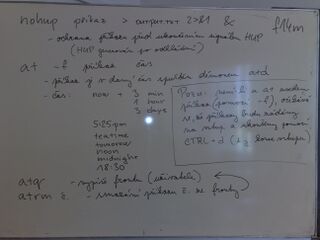 nohup příkaz > output.txt 2>&1 &
f14m
- ochrana příkazu před ukončením signálem HUP
(HUP generován po odhlášení)
at -f příkaz čas
- příkaz je v daný čas spuštěn démonem atd
- čas: now + 3 min
1 hour
3 days
5:25 pm
teatime
tomorrow
noon
midnight
18:30
Pozn: není-li u at uveden
příkaz (pomocí -f), očekává
se, že příkazy budou zadány
na vstup a ukončeny pomocí
CTRL+d (tj. konec vstupu)
atq - vypíše frontu (uživatele)
atrm č. - smazání příkazu č. ze fronty